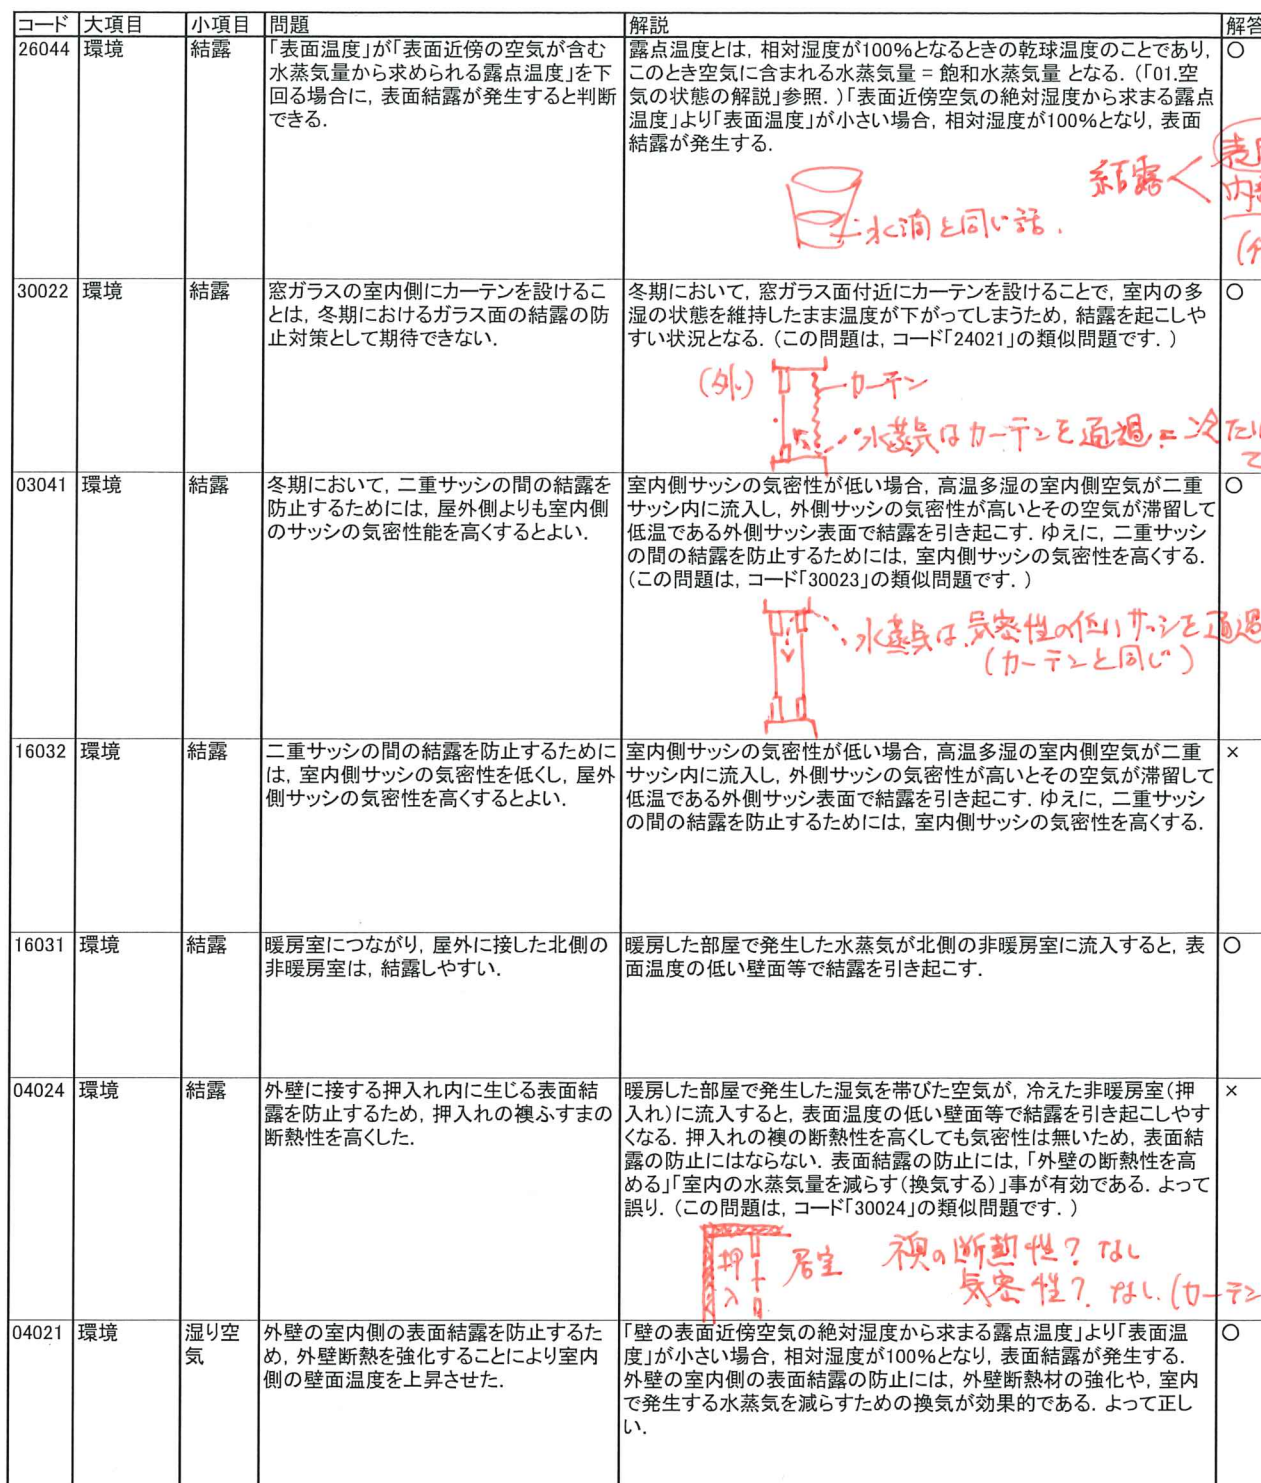 コード 大項目 小項目 問題 解説 解答
26044 環境 結露 「表面温度」が「表面近傍の空気が含む
水蒸気量から求められる露点温度」を下
回る場合に, 表面結露が発生すると判断
できる.
露点温度とは, 相対湿度が100%となるときの乾球温度のことであり,
このとき空気に含まれる水蒸気量 = 飽和水蒸気量 となる. (「01.空
気の状態の解説」参照. )「表面近傍空気の絶対湿度から求まる露点
温度」より「表面温度」が小さい場合, 相対湿度が100%となり, 表面
結露が発生する.
○
結露
水滴と同じ話.
30022 環境 結露 窓ガラスの室内側にカーテンを設けるこ
とは, 冬期におけるガラス面の結露の防
止対策として期待できない.
冬期において, 窓ガラス面付近にカーテンを設けることで, 室内の多
湿の状態を維持したまま温度が下がってしまうため, 結露を起こしや
すい状況となる. (この問題は, コード「24021」の類似問題です. )
○
(外) カーテン
水蒸気はカーテンを通過
03041 環境 結露 冬期において, 二重サッシの間の結露を
防止するためには, 屋外側よりも室内側
のサッシの気密性能を高くするとよい.
室内側サッシの気密性が低い場合, 高温多湿の室内側空気が二重
サッシ内に流入し, 外側サッシの気密性が高いとその空気が滞留して
低温である外側サッシ表面で結露を引き起こす. ゆえに, 二重サッシ
の間の結露を防止するためには, 室内側サッシの気密性を高くする.
(この問題は, コード「30023」の類似問題です. )
○
水蒸気は気密性の低いサッシを通過
(カーテンと同じ)
16032 環境 結露 二重サッシの間の結露を防止するために
は, 室内側サッシの気密性を低くし, 屋外
側サッシの気密性を高くするとよい.
室内側サッシの気密性が低い場合, 高温多湿の室内側空気が二重
サッシ内に流入し, 外側サッシの気密性が高いとその空気が滞留して
低温である外側サッシ表面で結露を引き起こす. ゆえに, 二重サッシ
の間の結露を防止するためには, 室内側サッシの気密性を高くする.
×
16031 環境 結露 暖房室につながり, 屋外に接した北側の
非暖房室は, 結露しやすい.
暖房した部屋で発生した水蒸気が北側の非暖房室に流入すると, 表
面温度の低い壁面等で結露を引き起こす.
○
04024 環境 結露 外壁に接する押入れ内に生じる表面結
露を防止するため, 押入れの襖ふすまの
断熱性を高くした.
暖房した部屋で発生した湿気を帯びた空気が, 冷えた非暖房室(押
入れ)に流入すると, 表面温度の低い壁面等で結露を引き起こしやす
くなる. 押入れの襖の断熱性を高くしても気密性は無いため, 表面結
露の防止にはならない. 表面結露の防止には, 「外壁の断熱性を高
める」「室内の水蒸気量を減らす(換気する)」事が有効である. よって
誤り. (この問題は, コード「30024」の類似問題です. )
×
押入 居室 襖の断熱性? なし
気密性? なし. (カーテン
04021 環境 湿り空
気
外壁の室内側の表面結露を防止するた
め, 外壁断熱を強化することにより室内
側の壁面温度を上昇させた.
「壁の表面近傍空気の絶対湿度から求まる露点温度」より「表面温
度」が小さい場合, 相対湿度が100%となり, 表面結露が発生する.
外壁の室内側の表面結露の防止には, 外壁断熱材の強化や, 室内
で発生する水蒸気を減らすための換気が効果的である. よって正し
い.
○